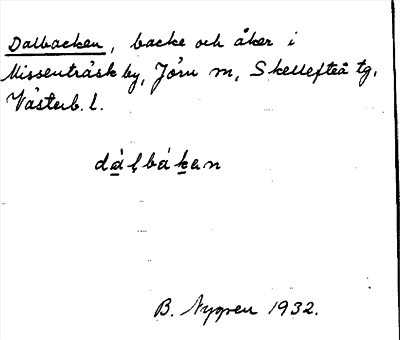 Dalbacken, backe och åker i
Missenträsk by, Jörn sn, Skellefteå tg,
Västerb. l.
dàlbákan
B. Nygren 1932.